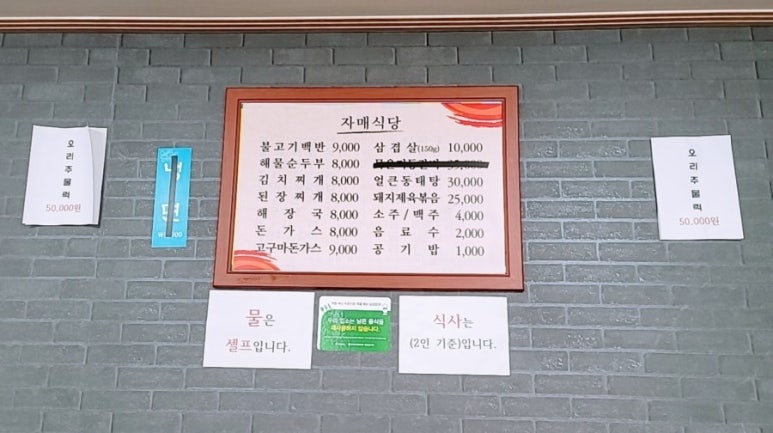 자매식당
불고기백반 9,000
해물순두부 8,000
김치찌개 8,000
된장찌개 8,000
해장국 8,000
돈가스 8,000
고구마돈가스 9,000
삼겹살(150g) 10,000
얼큰동태탕 30,000
돼지제육볶음 25,000
소주/맥주 4,000
음료수 2,000
공기밥 1,000
오리주물럭
50,000원
오리주물럭
50,000원
물은
셀프입니다.
우리 업소는 남은 음식을
재사용하지 않습니다.
식사는
(2인 기준)입니다.